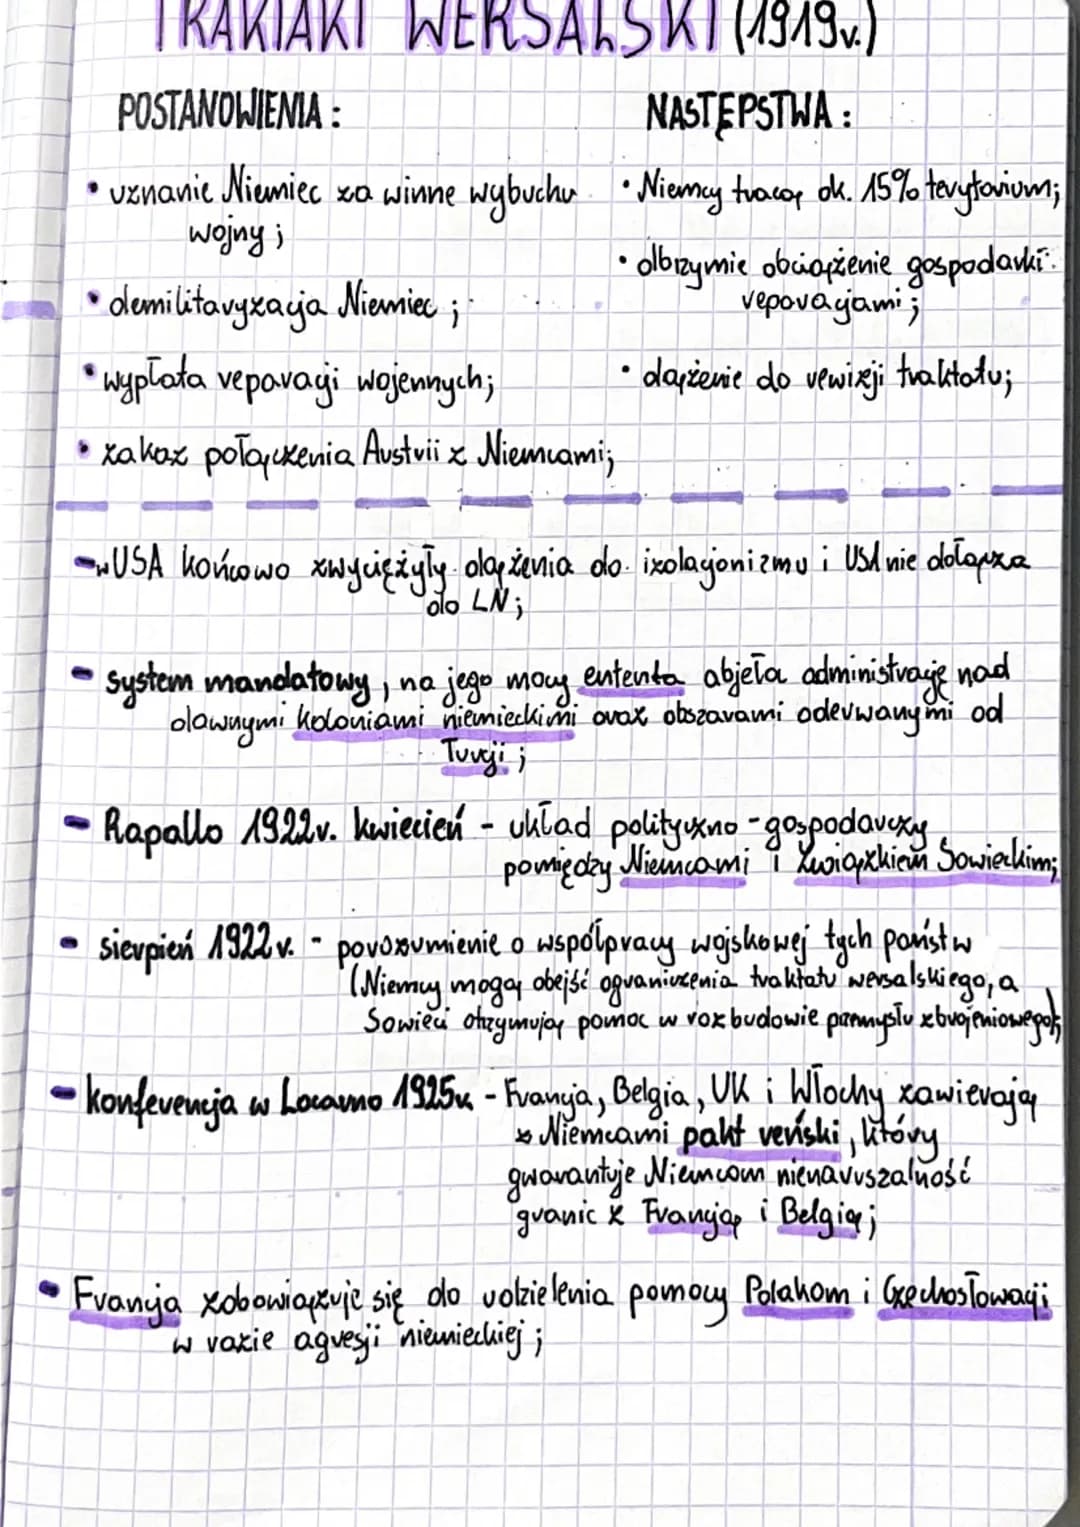 TRAKTAKT WERSALSKI (1919r.)
POSTANOWIENIA:
• uznanie Niemiec za winne wybuchu
wojny;
• demilitaryzacja Niemiec;
• wypłata reparacji wojennych;
• zakaz połączenia Austrii z Niemcami;
NASTĘPSTWA:
• Niemcy tracą ok. 15% terytorium;
• olbrzymie obciążenie gospodarki
reparacjami;
• dążenie do rewizji traktatu;
- w USA końcowo zwyciężyły dążenia do izolacjonizmu i USA nie dołącza
do LN;
- system mandatowy, na jego mocy ententa objęła administrację nad
dawnymi koloniami niemieckimi oraz obszarami oderwanymi od
Turcji;
- Rapallo 1922r. kwiecień - układ polityczno-gospodarczy
pomiędzy Niemcami i Związkiem Sowieckim;
- sierpień 1922r. - porozumienie o współpracy wojskowej tych państw
(Niemcy mogą obejść ograniczenia traktatu wersalskiego, a
Sowieci otrzymują pomoc w rozbudowie przemysłu zbrojeniowego);
- konferencja w Locarno 1925r. - Francja, Belgia, UK i Włochy zawierają
z Niemcami pakt reński, który
gwarantuje Niemcom nienaruszalność
granic z Francją i Belgią;
• Francja zobowiązuje się do udzielenia pomocy Polakom i Czechosłowacji
w razie agresji niemieckiej;